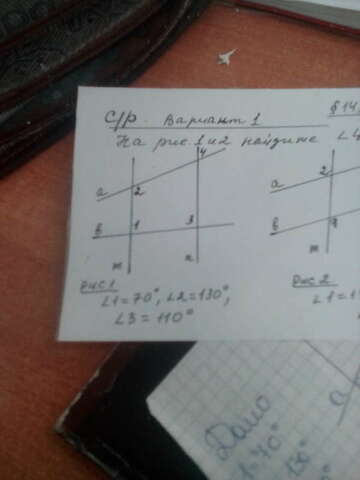 С/р. Вариант 1
§ 14
На рис. 1 и 2 найдите ∠4
4
а 2
в 1 3
m n
Рис 1
∠1 = 70°, ∠2 = 130°,
∠3 = 110°
2
а
в
m
Рис 2
∠1 =
Дано